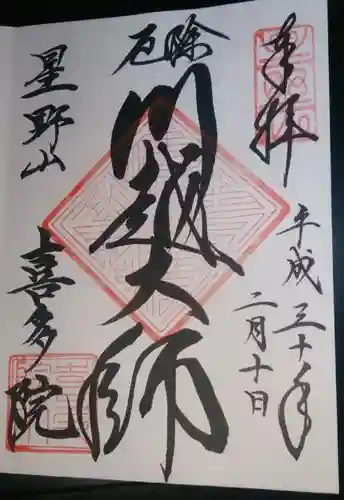 奉拝
平成三十年
二月十日
厄除
川越大師
星野山
喜多院